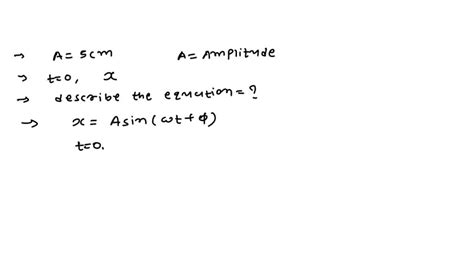 → A = 5cm A = Amplitude
→ t=0, x
→ describe the equation = ?
→ x = A sin(ωt + φ)
t=0.